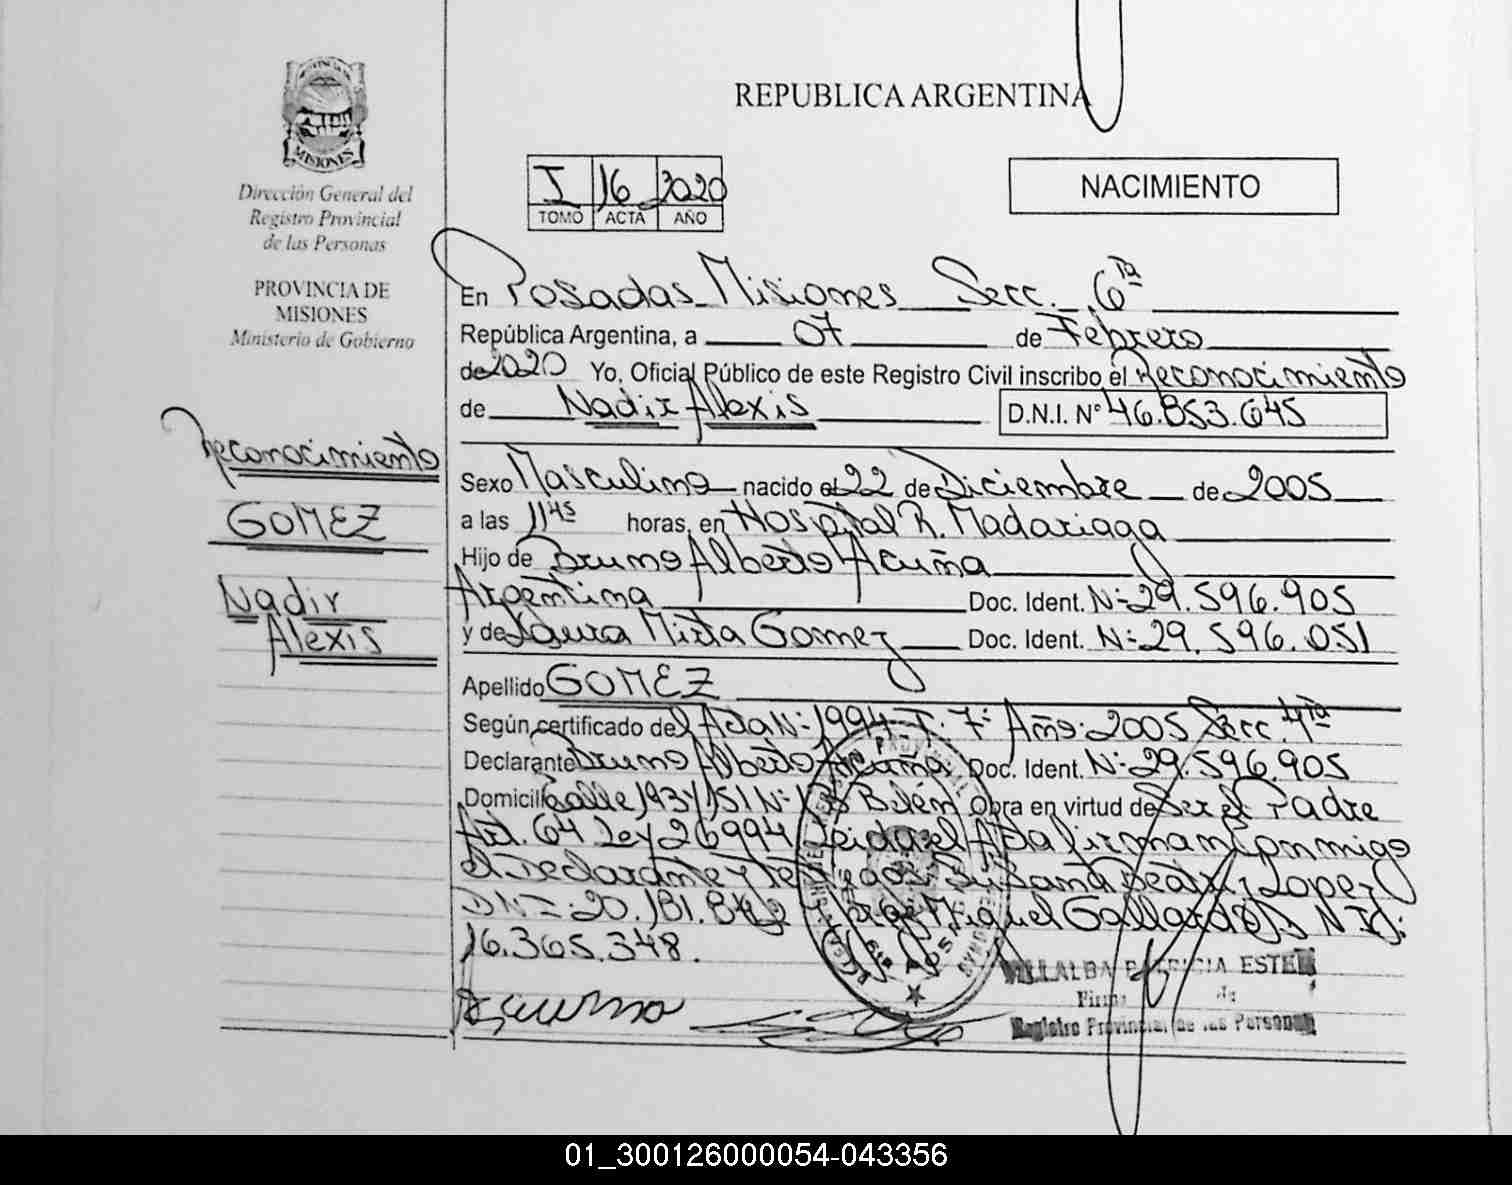 REPUBLICA ARGENTINA
PROVINCIA DE
MISIONES
Dirección General del
Registro Provincial
de las Personas
PROVINCIA DE
MISIONES
Ministerio de Gobierno
I 16 2020
TOMO ACTA AÑO
NACIMIENTO
Reconocimiento
GOMEZ
Nadir
Alexis
En Posadas Misiones Secc. 6ta
República Argentina, a 07 de Febrero
de 2020 Yo, Oficial Público de este Registro Civil inscribo el Reconocimiento
de Nadir Alexis D.N.I. N° 46.853.645
Sexo Masculino nacido el 22 de Diciembre de 2005
a las 11 45 horas, en Hospital R. Madariaga
Hijo de Bruno Alberto Acuña
Argentina Doc. Ident. Nº 29.596.905
y de Laura Mirta Gomez Doc. Ident. Nº 29.596.051
Apellido GOMEZ
Según certificado del Acta Nº 1994 T. 7º Año: 2005 Secc. 4ta
Declarante Bruno Alberto Acuña Doc. Ident. Nº 29.596.905
Domicilio Calle 193 y 151 Nº Bº Belén Obra en virtud de Ser el Padre
Art. 64 Ley 26994 Leida el Acta firman conmigo
el Declarante y Testigos: Susana Beatriz Lopez
DNI: 20.181.842 y Jorge Miguel Gallardo D N I:
16.365.348.
BAcuña
VILLALBA PATRICIA ESTER
Registro Provincial de las Personas
01_300126000054-043356